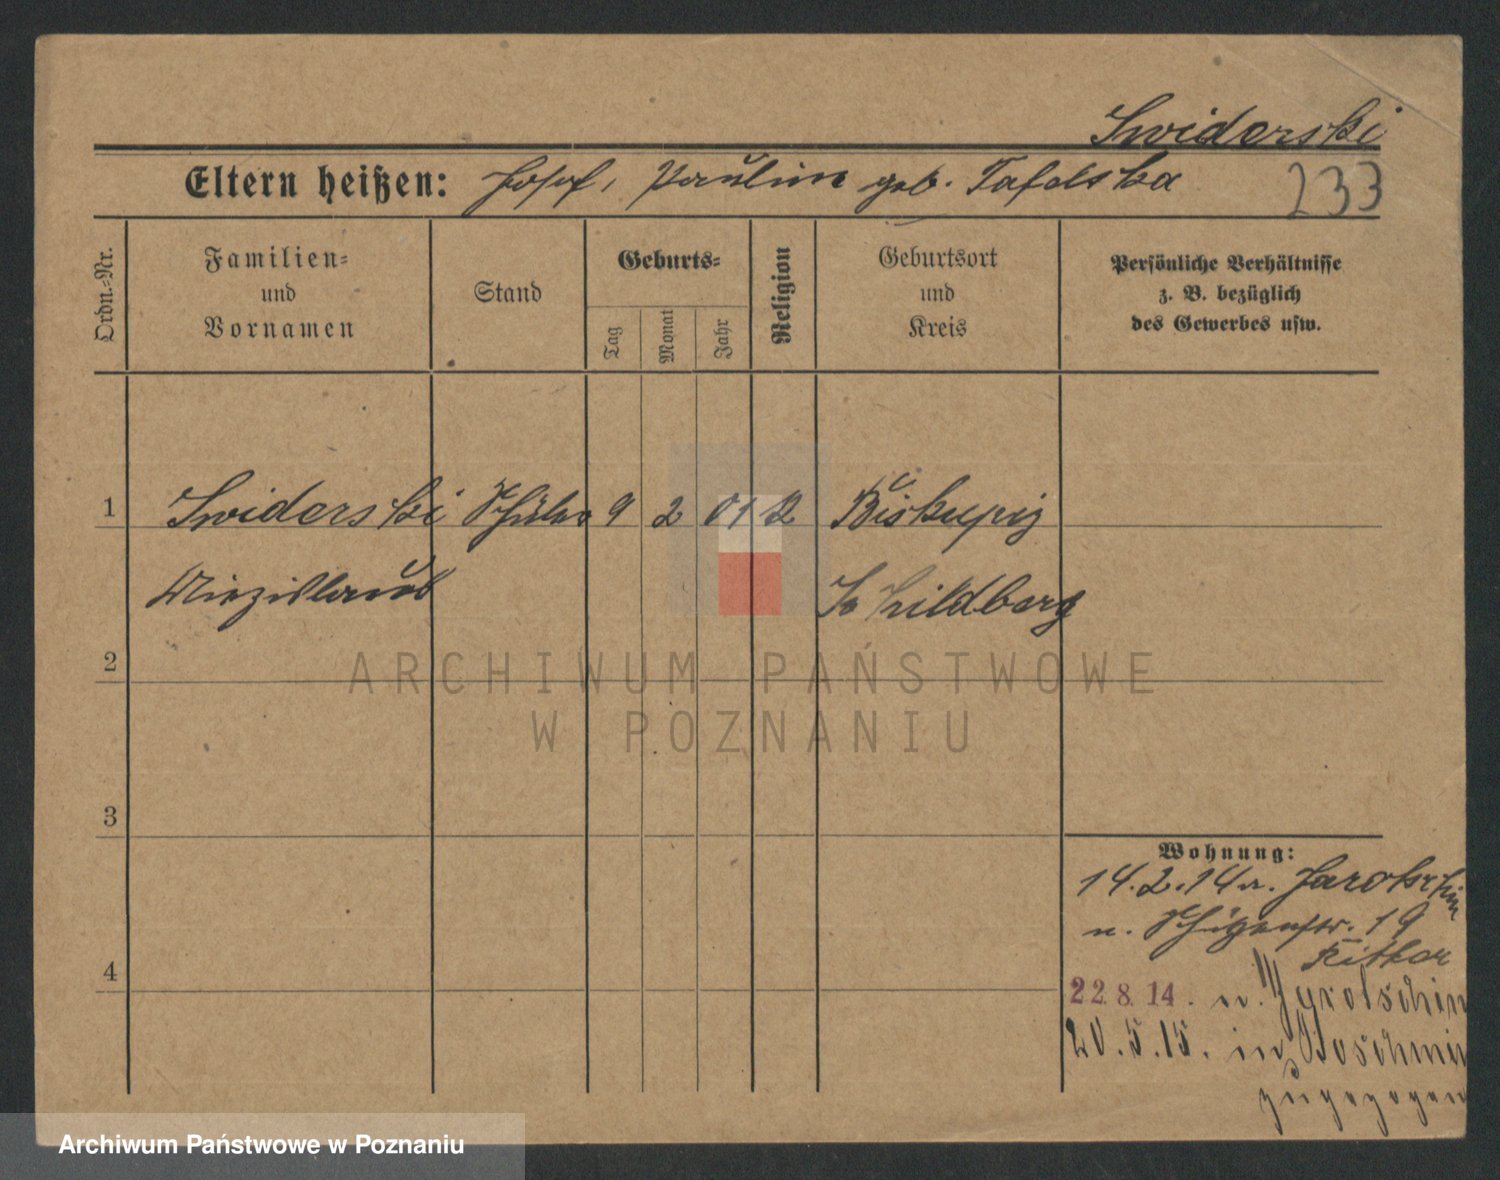 Swiderski
Eltern heißen: Josef, Paulina geb. Tafelska
233
Ordn.-Nr.
Familien-
und
Vornamen
Stand
Geburts-
Tag
Monat
Jahr
Religion
Geburtsort
und
Kreis
Persönliche Verhältnisse
z. B. bezüglich
des Gewerbes usw.
1 Swiderski Schüler 9 2 01 R Biskupiz
Miezislaus Kr Schildberg
2
3
4
Wohnung:
14.2.14 a. Jarotschin
n. Schützenstr. 19
Ritter
22.8.14. n. Jarotschin
20.5.15. in Boschmin
zugezogen
ARCHIWUM PAŃSTWOWE
W POZNANIU
Archiwum Państwowe w Poznaniu